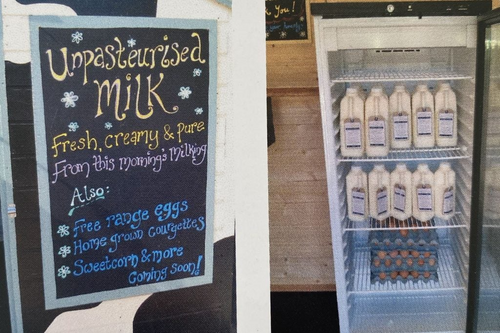 Unpasteurised
Milk
Fresh, creamy & pure
From this morning's milking
Also:
Free range eggs
Home grown courgettes
Sweetcorn & more
Coming soon!
You!